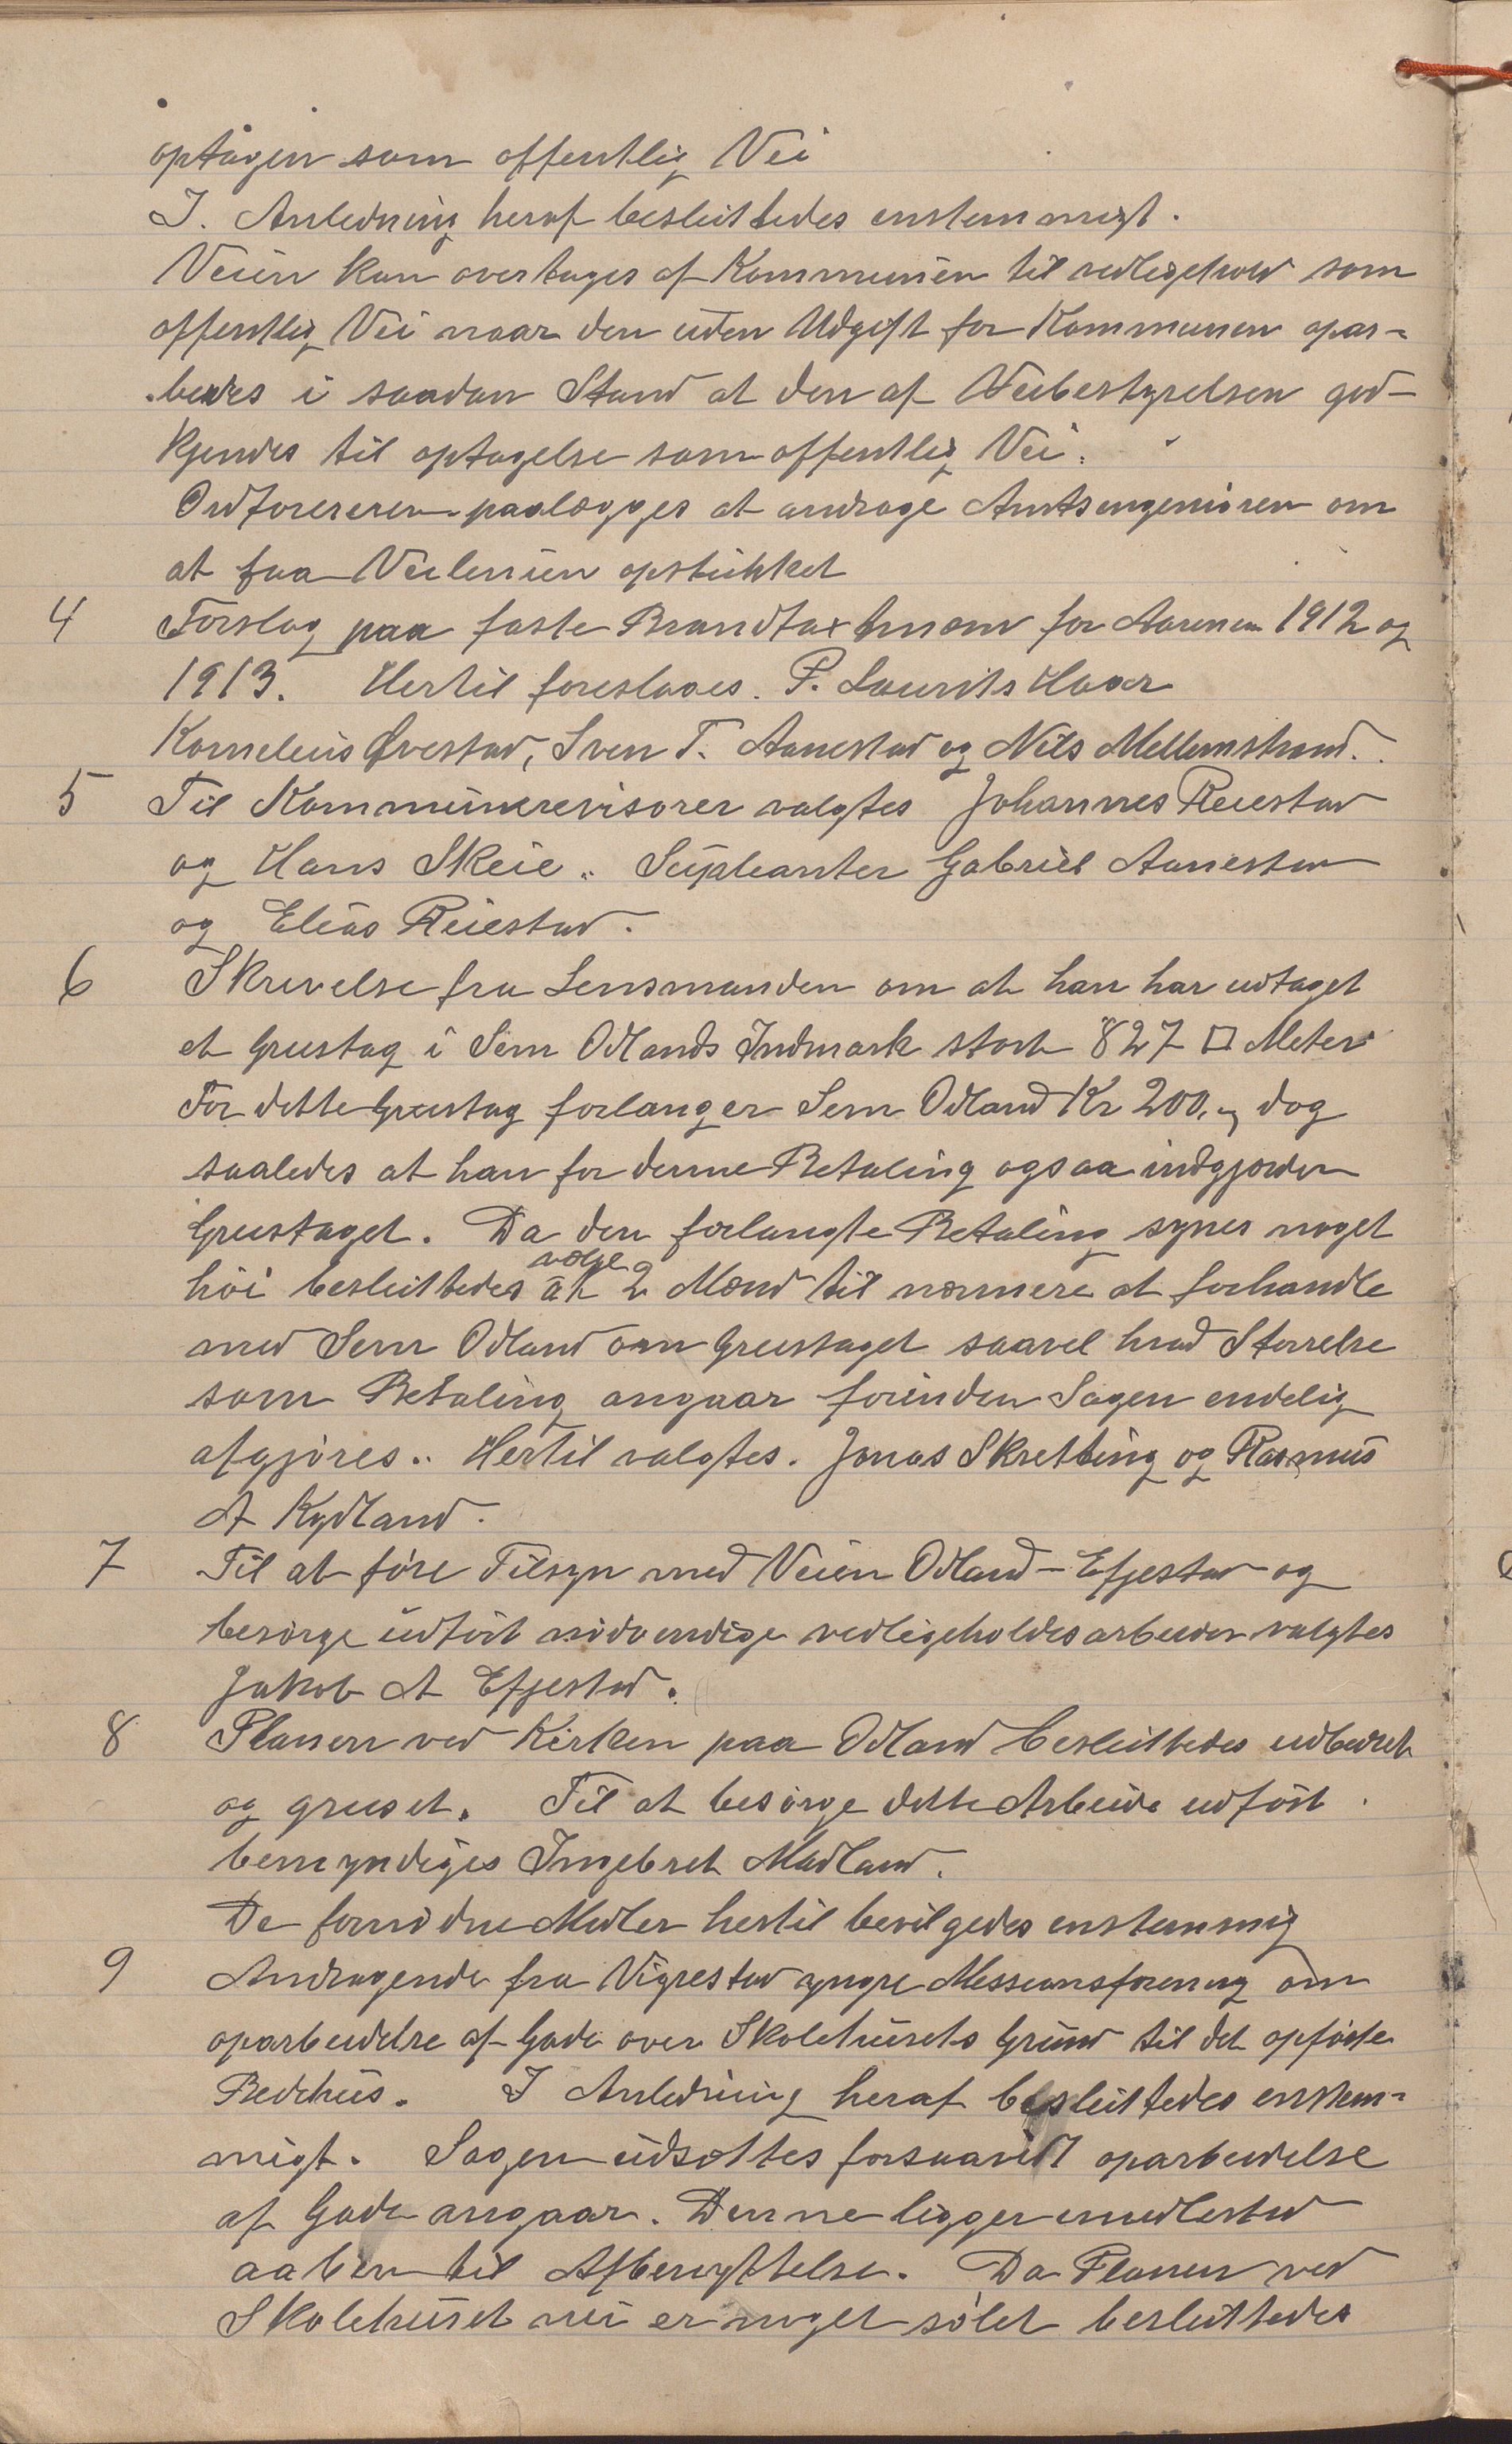 optagen som offentlig Vei
I. Anledning heraf besluttedes enstemmigt.
Veien kan overtages af Kommunen til vedligehold som
offentlig Vei naar den uden Udgift for Kommunen opar-
beides i saadan Stand at den af Veibestyrelsen god-
kjendes til optagelse som offentlig Vei.
Ordforereren paalægges at andrage Amtsingeniøren om
at faa Veilinien opstikket
4 Forslag paa faste Brandtaxtmæn for Aarene 1912 og
1913. Hertil foreslaaes. P. Laurits Haar
Kornelius Ovestad, Sven T. Aanestad og Nils Mellemstrand.
5 Til Kommunerevisorer valgtes Johannes Reiestad
og Hans Skeie. Supleanter Gabriel Aanestad
og Elias Reiestad.
6 Skrivelse fra Lensmanden om at han har udtaget
et Grustag i Sem Odlands Indmark stort 827 □ Meter
For dette Grustag forlanger Sem Odland Kr 200,- dog
saaledes at han for denne Betaling ogsaa indgjærder
Grustaget. Da den forlangte Betaling synes noget
høi besluttedes at vælge 2 Mænd til nærmere at forhandle
med Sem Odland om Grustaget saavel hvad Størrelse
som Betaling angaar forinden Sagen endelig
afgjøres. Hertil valgtes. Jonas Skretting og Rasmus
A Kydland.
7 Til at føre Tilsyn med Veien Odland - Efjestad og
besørge udført nødvendige vedligeholdesarbeider valgtes
Jakob A Efjestad.
8 Planen ved Kirken paa Odland besluttedes udbedret
og gruset. Til at besørge dette Arbeide udført
bemyndiges Ingebret Madland.
De fornødne Midler hertil bevilgedes enstemmig
9 Andragende fra Vigrestad yngre Missionsforening om
oparbeidelse af Gade over Skolehusets Grund til det opførte
Bedehus. I Anledning heraf besluttedes enstem-
migt. Sagen udsættes forsaavidt oparbeidelse
af Gade angaar. Denne ligger imidlertid
aaben til Afbenyttelse. Da Planen ved
Skolehuset nu er noget sølet besluttedes